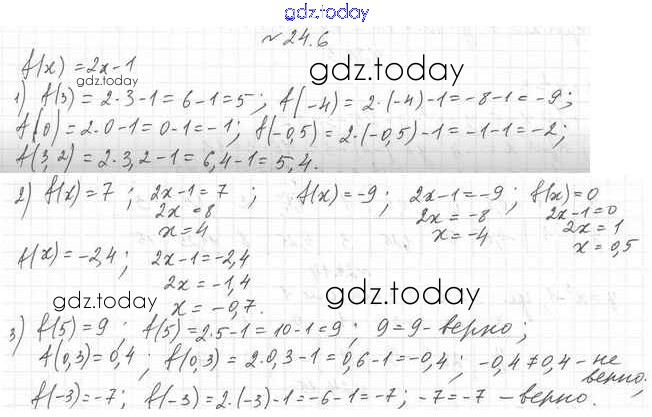 gdz.today
№ 24.6
f(x) = 2x-1
gdz.today
gdz.today
1) f(3) = 2·3-1=6-1=5; f(-4) = 2·(-4)-1=-8-1=-9;
f(0) = 2·0-1=0-1=-1; f(-0,5) = 2·(-0,5)-1=-1-1=-2;
f(3,2) = 2·3,2-1=6,4-1=5,4.
2) f(x)=7; 2x-1=7; f(x)=-9; 2x-1=-9; f(x)=0
2x=8 2x=-8 2x-1=0
x=4 x=-4 2x=1
x=0,5
f(x)=-2,4; 2x-1=-2,4
2x=-1,4
x=-0,7.
gdz.today
gdz.today
3) f(5)=9; f(5)=2·5-1=10-1=9; 9=9-верно;
f(0,3)=0,4; f(0,3)=2·0,3-1=0,6-1=-0,4; -0,4≠0,4-не
верно;
f(-3)=-7; f(-3)=2·(-3)-1=-6-1=-7; -7=-7 -верно.